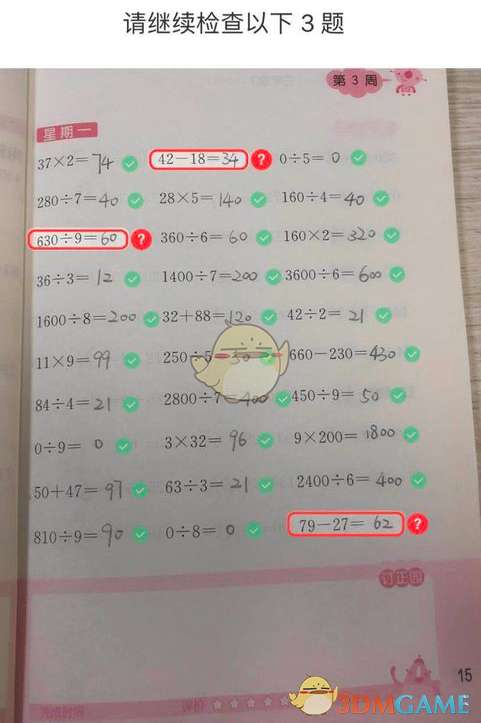 请继续检查以下 3 题
第 3 周
星期一
37×2=74 42-18=34 ? 0÷5=0
280÷7=40 28×5=140 160÷4=40
630÷9=60 ? 360÷6=60 160×2=320
36÷3=12 1400÷7=200 3600÷6=600
1600÷8=200 32+88=120 42÷2=21
11×9=99 250÷5=50 660-230=430
84÷4=21 2800÷7=400 450÷9=50
0÷9=0 3×32=96 9×200=1800
50+47=97 63÷3=21 2400÷6=400
810÷9=90 0÷8=0 79-27=62 ?
订正园
15
评价
3DMGAME